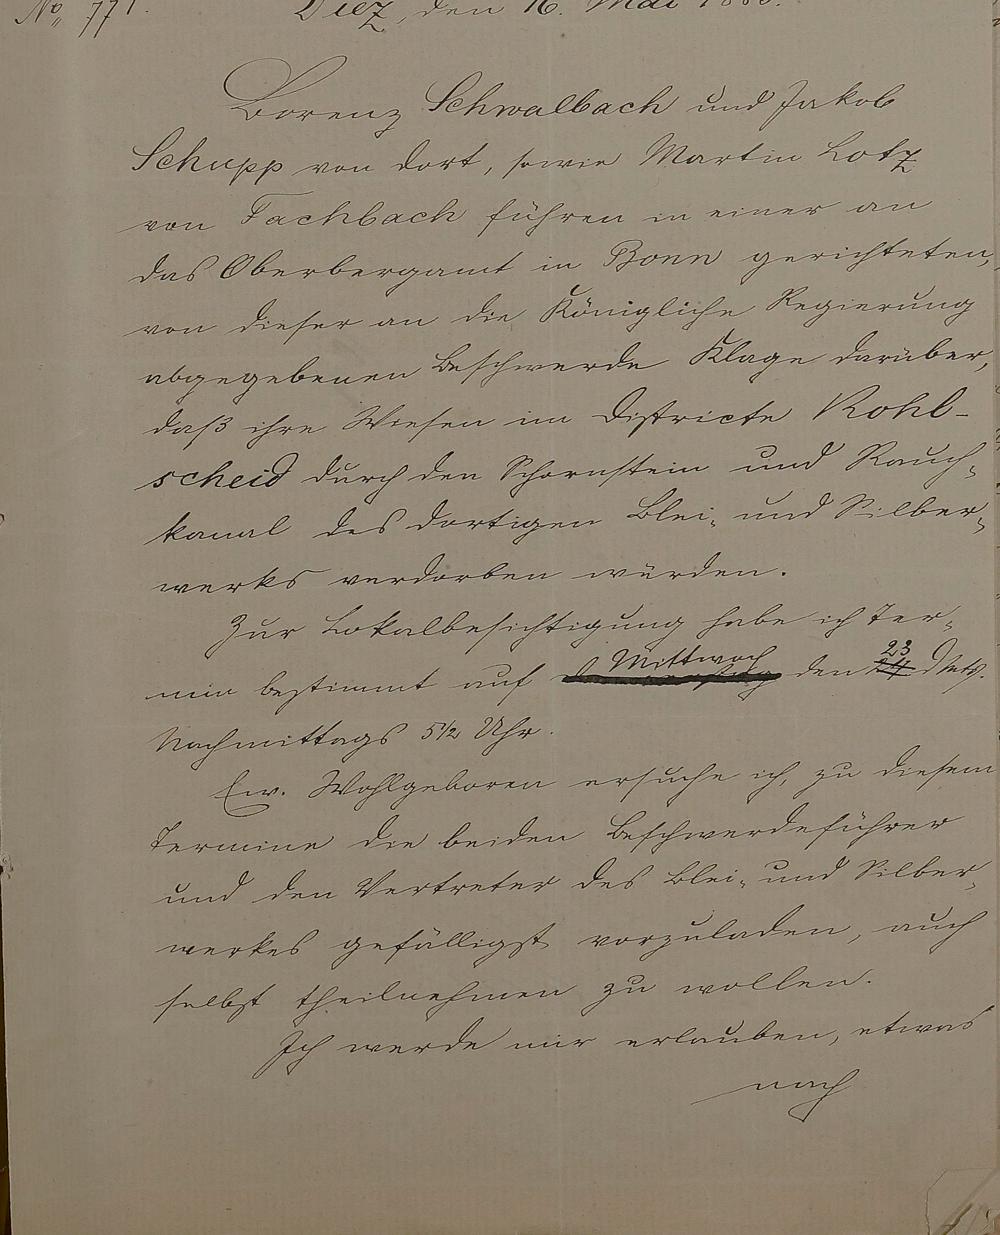 No 771. Diez, den 16. Mai 188
Lorenz Schwalbach und Jakob
Schupp von dort, sowie Martin Lotz
von Fachbach führen in einer an
das Oberbergamt in Bonn gerichteten,
von dieser an die Königliche Regierung
abgegebenen Beschwerde Klage darüber,
daß ihre Wiesen im Districte Kohl-
scheid durch den Schornstein und Rauch-
kanal des dortigen Blei- und Silber-
werks verdorben würden.
Zur Lokalbesichtigung habe ich Ter-
min bestimmt auf Mittwoch den 23 d Mts.
Nachmittags 5 1/2 Uhr.
Ew. Wohlgeboren ersuche ich, zu diesem
Termine die beiden Beschwerdeführer
und den Vertreter des Blei- und Silber-
werkes gefälligst vorzuladen, auch
selbst theilnehmen zu wollen.
Ich werde mir erlauben, etwas
nach